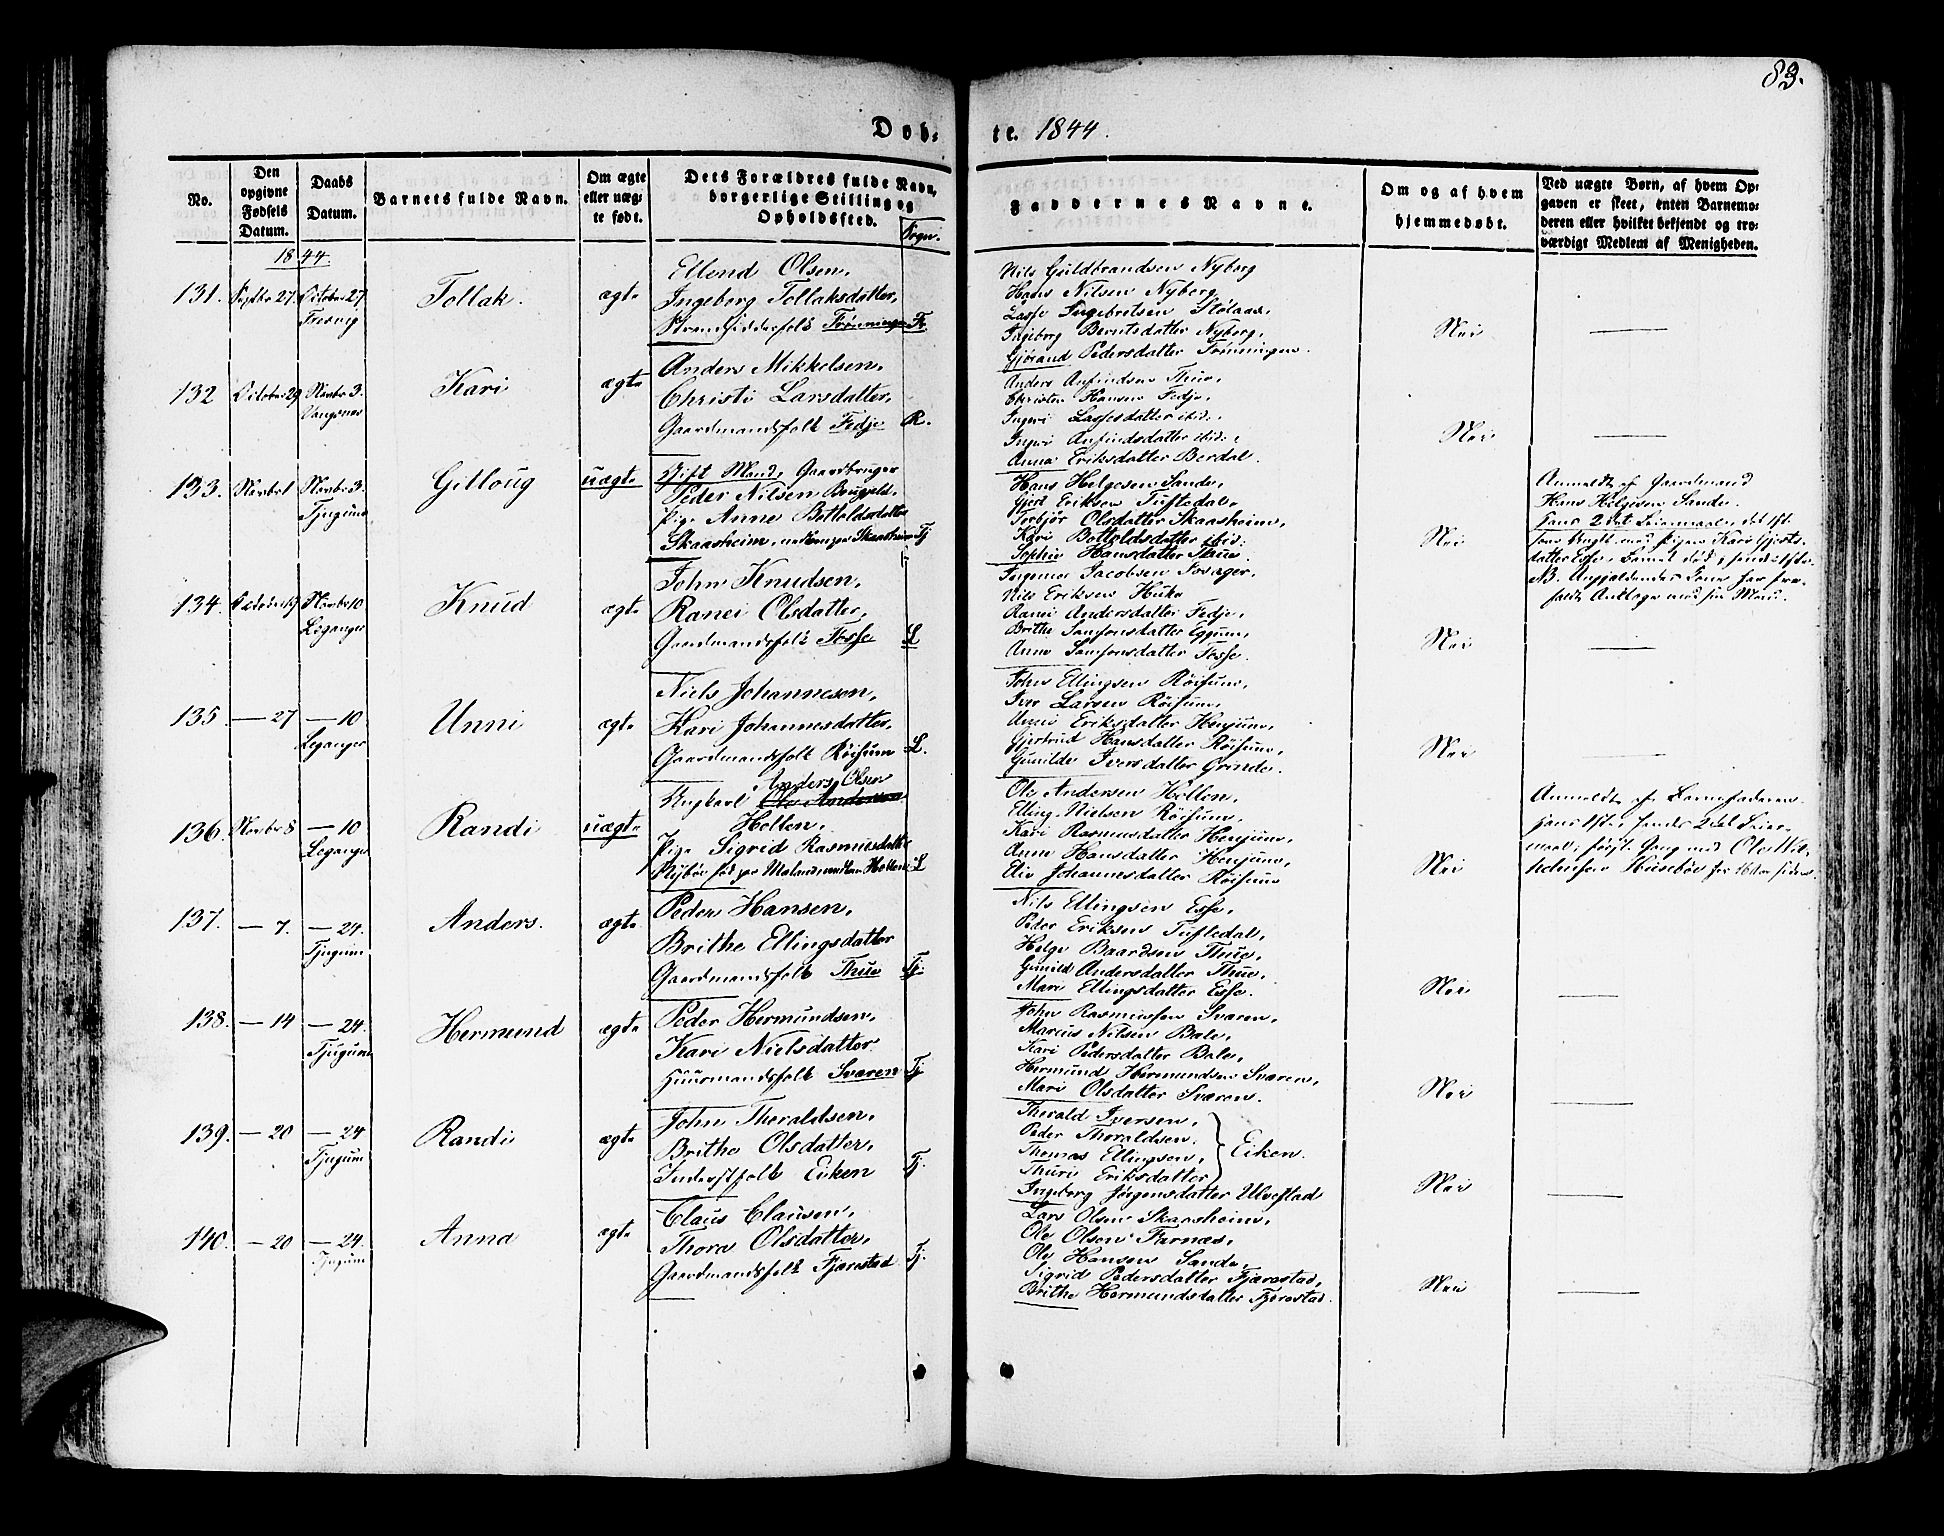 83.
Døb- te. 1844.
No.
Den opgivne Fødsels Datum.
Daabs Datum.
Barnets fulde Navn.
Om ægte eller uægte født.
Dets Forældres fulde Navn, borgerlige Stilling og Opholdssted.
Sogn.
Faddernes Navne.
Om og af hvem hjemmedøbt.
Ved uægte Børn, af hvem Opgaven er skeet, enten Barnemoderen eller hvilket bekjendt og troværdigt Medlem af Menigheden.
1844.
131. Septbr 27. October 27. Fresvig
Tollak.
ægte
Ellend Olsen,
Ingeborg Tollaksdatter,
Strandsidderfolk Trønningen Fr.
Nils Guldbrandsen Nyborg
Hans Nilsen Nyborg,
Lasse Ingebretsen Stølaas,
Ingeborg Berntsdatter Nyborg,
Gjörand Pedersdatter Trønningen.
Nei
132 October 29 Novbr 3. Vangsnes
Kari
ægte
Anders Mikkelsen,
Christi Larsdatter,
Gaardmandsfolk Fedje R.
Anders Anfindsen Thue,
Christen Hansen Fedje,
Ingeri Lassesdatter ibid:,
Ingeri Anfindsdatter ibid:,
Anna Eriksdatter Berdal.
Nei
133. Novbr 1 Novbr 3. Tjugum
Gilloug
uægte
Gift Mand, Gaardbruger
Peder Nilsen
Pige Anne Botholdsdatter
Skaasheim, Tj
Hans Helgesen Sande,
Gjert Eriksen Tuftedal,
Torbjør Olsdatter Skaasheim,
Kari Botholdsdatter ibid:
Sophie Hansdatter Thue
Nei
Anmeldt af Gaardmand
Hans Helgesen Sande.
hans 2det Leiermaal, det 1ste
datter Esse,
NB.
134. Novbr 10 Leganger
Knud
ægte
John Knudsen,
Ranei Olsdatter,
Gaardmandsfolk Fosse L
Ingemar Jacobsen
Nils Eriksen Huke
Ranei Andersdatter Fedje,
Brithe Samsonsdatter Eggum,
Anne Samsonsdatter Fosse.
Nei
135. — 27 — 10 Leganger
Unni
ægte
Niels Johannesen,
Kari Johannesdatter,
Gaardmandsfolk Röisum L.
John Ellingsen Röisum,
Iver Larsen Röisum,
Unni Eriksdatter Henjum,
Gjertrud Hansdatter Röisum,
Gunilde Iversdatter Grinde.
Nei
136. Novbr 8 — 10 Leganger
Randi
uægte
Anders Olsen
Ungkarl Ole Andersen
Holten,
Pige Sigrid Rasmusdatter
L
Ole Andersen Holten,
Elling Nielsen Röisum,
Kari Rasmusdatter Henjum,
Anne Hansdatter Henjum,
Eli Johannesdatter Röisum
Nei
Anmeldt af Barnefaderen.
hans 1ste, hendes 2det Leier-
maal; første Gang med Ole
Husebøe for 16 Aar siden.
137. — 7. — 24. Tjugum
Anders.
ægte
Peder Hansen,
Brithe Ellingsdatter
Gaardmandsfolk Thue Tj.
Nils Ellingsen Esse,
Peder Eriksen Tuftedal,
Helge Baardsen Thue,
Gunild Andersdatter Thue,
Mari Ellingsdatter Esse.
Nei
138. — 14 — 24. Tjugum
Hermund
ægte
Peder Hermundsen,
Kari Nielsdatter
Huusmandsfolk Svaren Tj
John Rasmussen Svaren,
Marcus Nilsen Bale,
Kari Pedersdatter Bale,
Hermund Hermundsen Svaren,
Mari Olsdatter Svaren.
Nei
139. — 20 — 24 Tjugum
Randi
ægte
John Thoraldsen,
Brithe Olsdatter,
Inderstfolk Eiken Tj.
Thorald Iversen,
Peder Thoraldsen.
Thomas Ellingsen,
Thuri Eriksdatter
Eiken.
Ingeborg Jørgensdatter Ulvestad
Nei
140. — 20 — 24. Tjugum
Anna
ægte
Claus Clausen,
Thora Olsdatter,
Gaardmandsfolk Fjærestad Tj.
Lars Olsen Skaasheim,
Ole Olsen Farnæs,
Ole Hansen Sande,
Sigrid Pedersdatter Fjærestad,
Brithe Hermundsdatter Fjærestad.
Nei